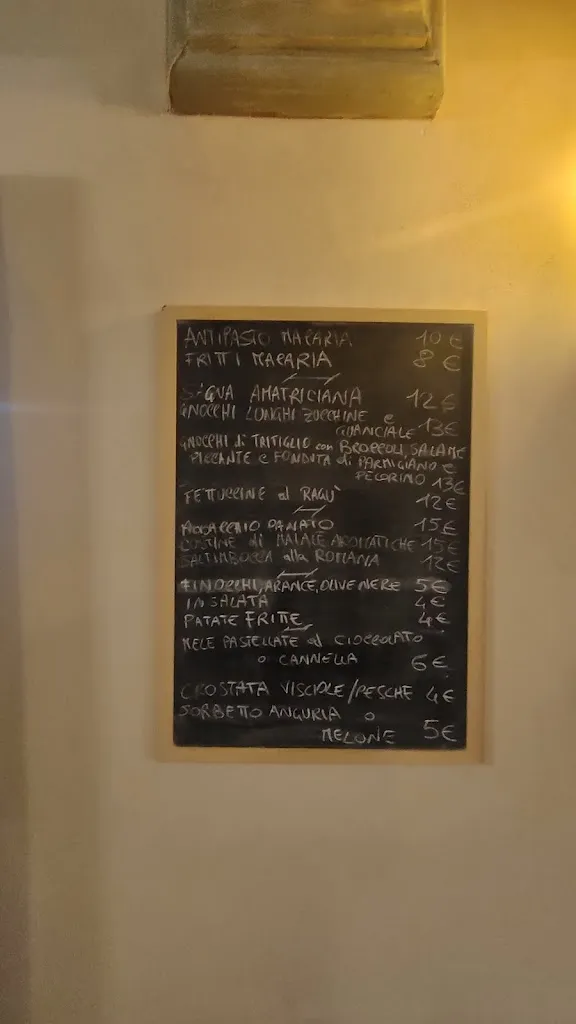 ANTIPASTO MACARIA 10 €
FRITTI MACARIA 8 €
S'GUA AMATRICIANA 12 €
GNOCCHI LUNGHI ZUCCHINE e
GUANCIALE 13€
GNOCCHI di TRITIGLIO con BROCCOLI, SALAME
PICCANTE e FONDUTA di PARMIGIANO e
PECORINO 13€
FETTUCCINE al RAGU' 12€
PANATO 15€
COSTINE di MAIALE AROMATICHE 15€
SALTIMBOCCA alla ROMANA 12€
FINOCCHI, ARANCE, OLIVE NERE 5€
INSALATA 4€
PATATE FRITTE 4€
MELE PASTELLATE al CIOCCOLATO
o CANNELLA 6€
CROSTATA VISCIOLE/PESCHE 4€
SORBETTO ANGURIA o
MELONE 5€